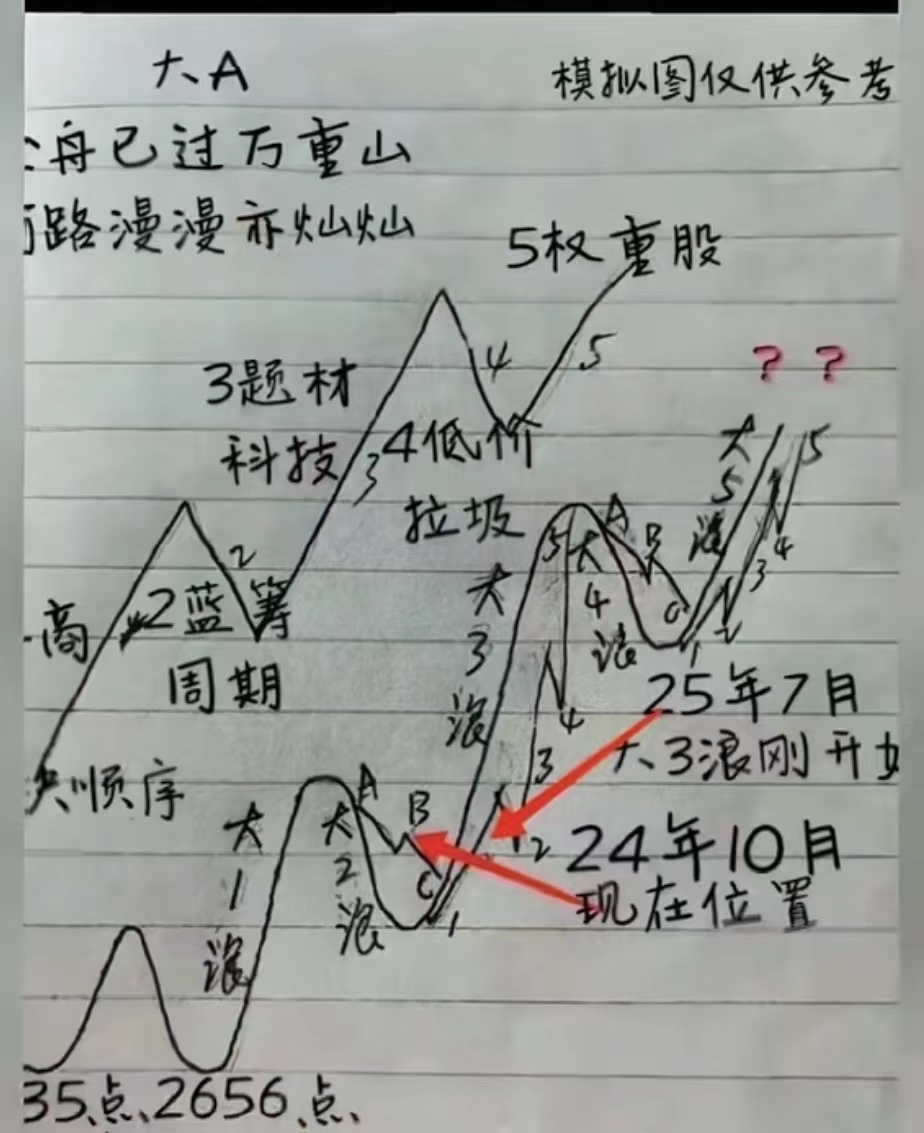 大A
模拟图仅供参考
舟已过万重山
路漫漫亦灿灿
5权重股
3题材
科技
4
5
3
4低价
拉圾
2
2蓝筹
周期
高
顺序
? ?
大5浪
1
2
3
4
5
大3浪
5
大4浪
A
B
C
25年7月
大3浪刚开始
1
2
3
4
24年10月
现在位置
大1浪
大2浪
A
B
C
1
35点、2656点、